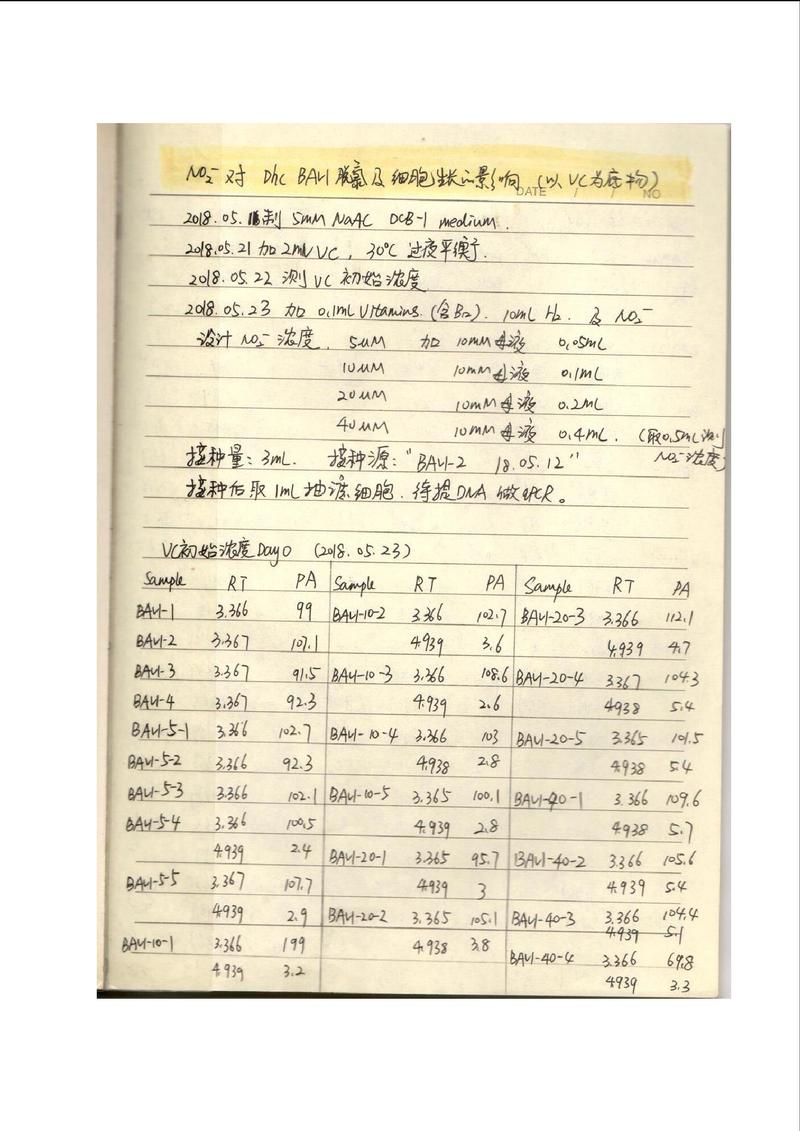 NO₂⁻ 对 Dhc BAV1 脱氯及细胞生长的影响 (以VC为底物)
DATE / / NO
2018.05.18制 5mM NaAC DCB-1 medium.
2018.05.21 加 2mL VC, 30℃ 过夜平衡.
2018.05.22 测VC初始浓度
2018.05.23 加 0.1mL Vitamins (含B12). 10mL H₂. 及 NO₂⁻
设计 NO₂⁻ 浓度. 5uM 加 10mM 母液 0.05mL
10uM 10mM母液 0.1mL
20uM 10mM母液 0.2mL
40uM 10mM母液 0.4mL. (取0.5mL测
接种量: 3mL. 接种源: "BAV1-2 18.05.12" NO₂⁻浓度)
接种后取1mL抽滤细胞. 待提DNA做qPCR。
VC初始浓度Day0 (2018.05.23)
Sample RT PA Sample RT PA Sample RT PA
BAV1-1 3.366 99 BAV1-10-2 3.366 102.7 BAV1-20-3 3.366 112.1
BAV1-2 3.367 107.1 4.939 3.6 4.939 4.7
BAV1-3 3.367 91.5 BAV1-10-3 3.366 108.6 BAV1-20-4 3.367 104.3
BAV1-4 3.367 92.3 4.939 2.6 4.938 5.4
BAV1-5-1 3.366 102.7 BAV1-10-4 3.366 103 BAV1-20-5 3.365 101.5
BAV1-5-2 3.366 92.3 4.938 2.8 4.938 5.4
BAV1-5-3 3.366 102.1 BAV1-10-5 3.365 100.1 BAV1-40-1 3.366 109.6
BAV1-5-4 3.366 100.5 4.939 2.8 4.938 5.7
4.939 2.4 BAV1-20-1 3.365 95.7 BAV1-40-2 3.366 105.6
BAV1-5-5 3.367 107.7 4.939 3 4.939 5.4
4.939 2.9 BAV1-20-2 3.365 105.1 BAV1-40-3 3.366 104.4
4.939 5.1
BAV1-10-1 3.366 199 4.938 3.8 BAV1-40-4 3.366 69.8
4.939 3.2 4.939 3.3